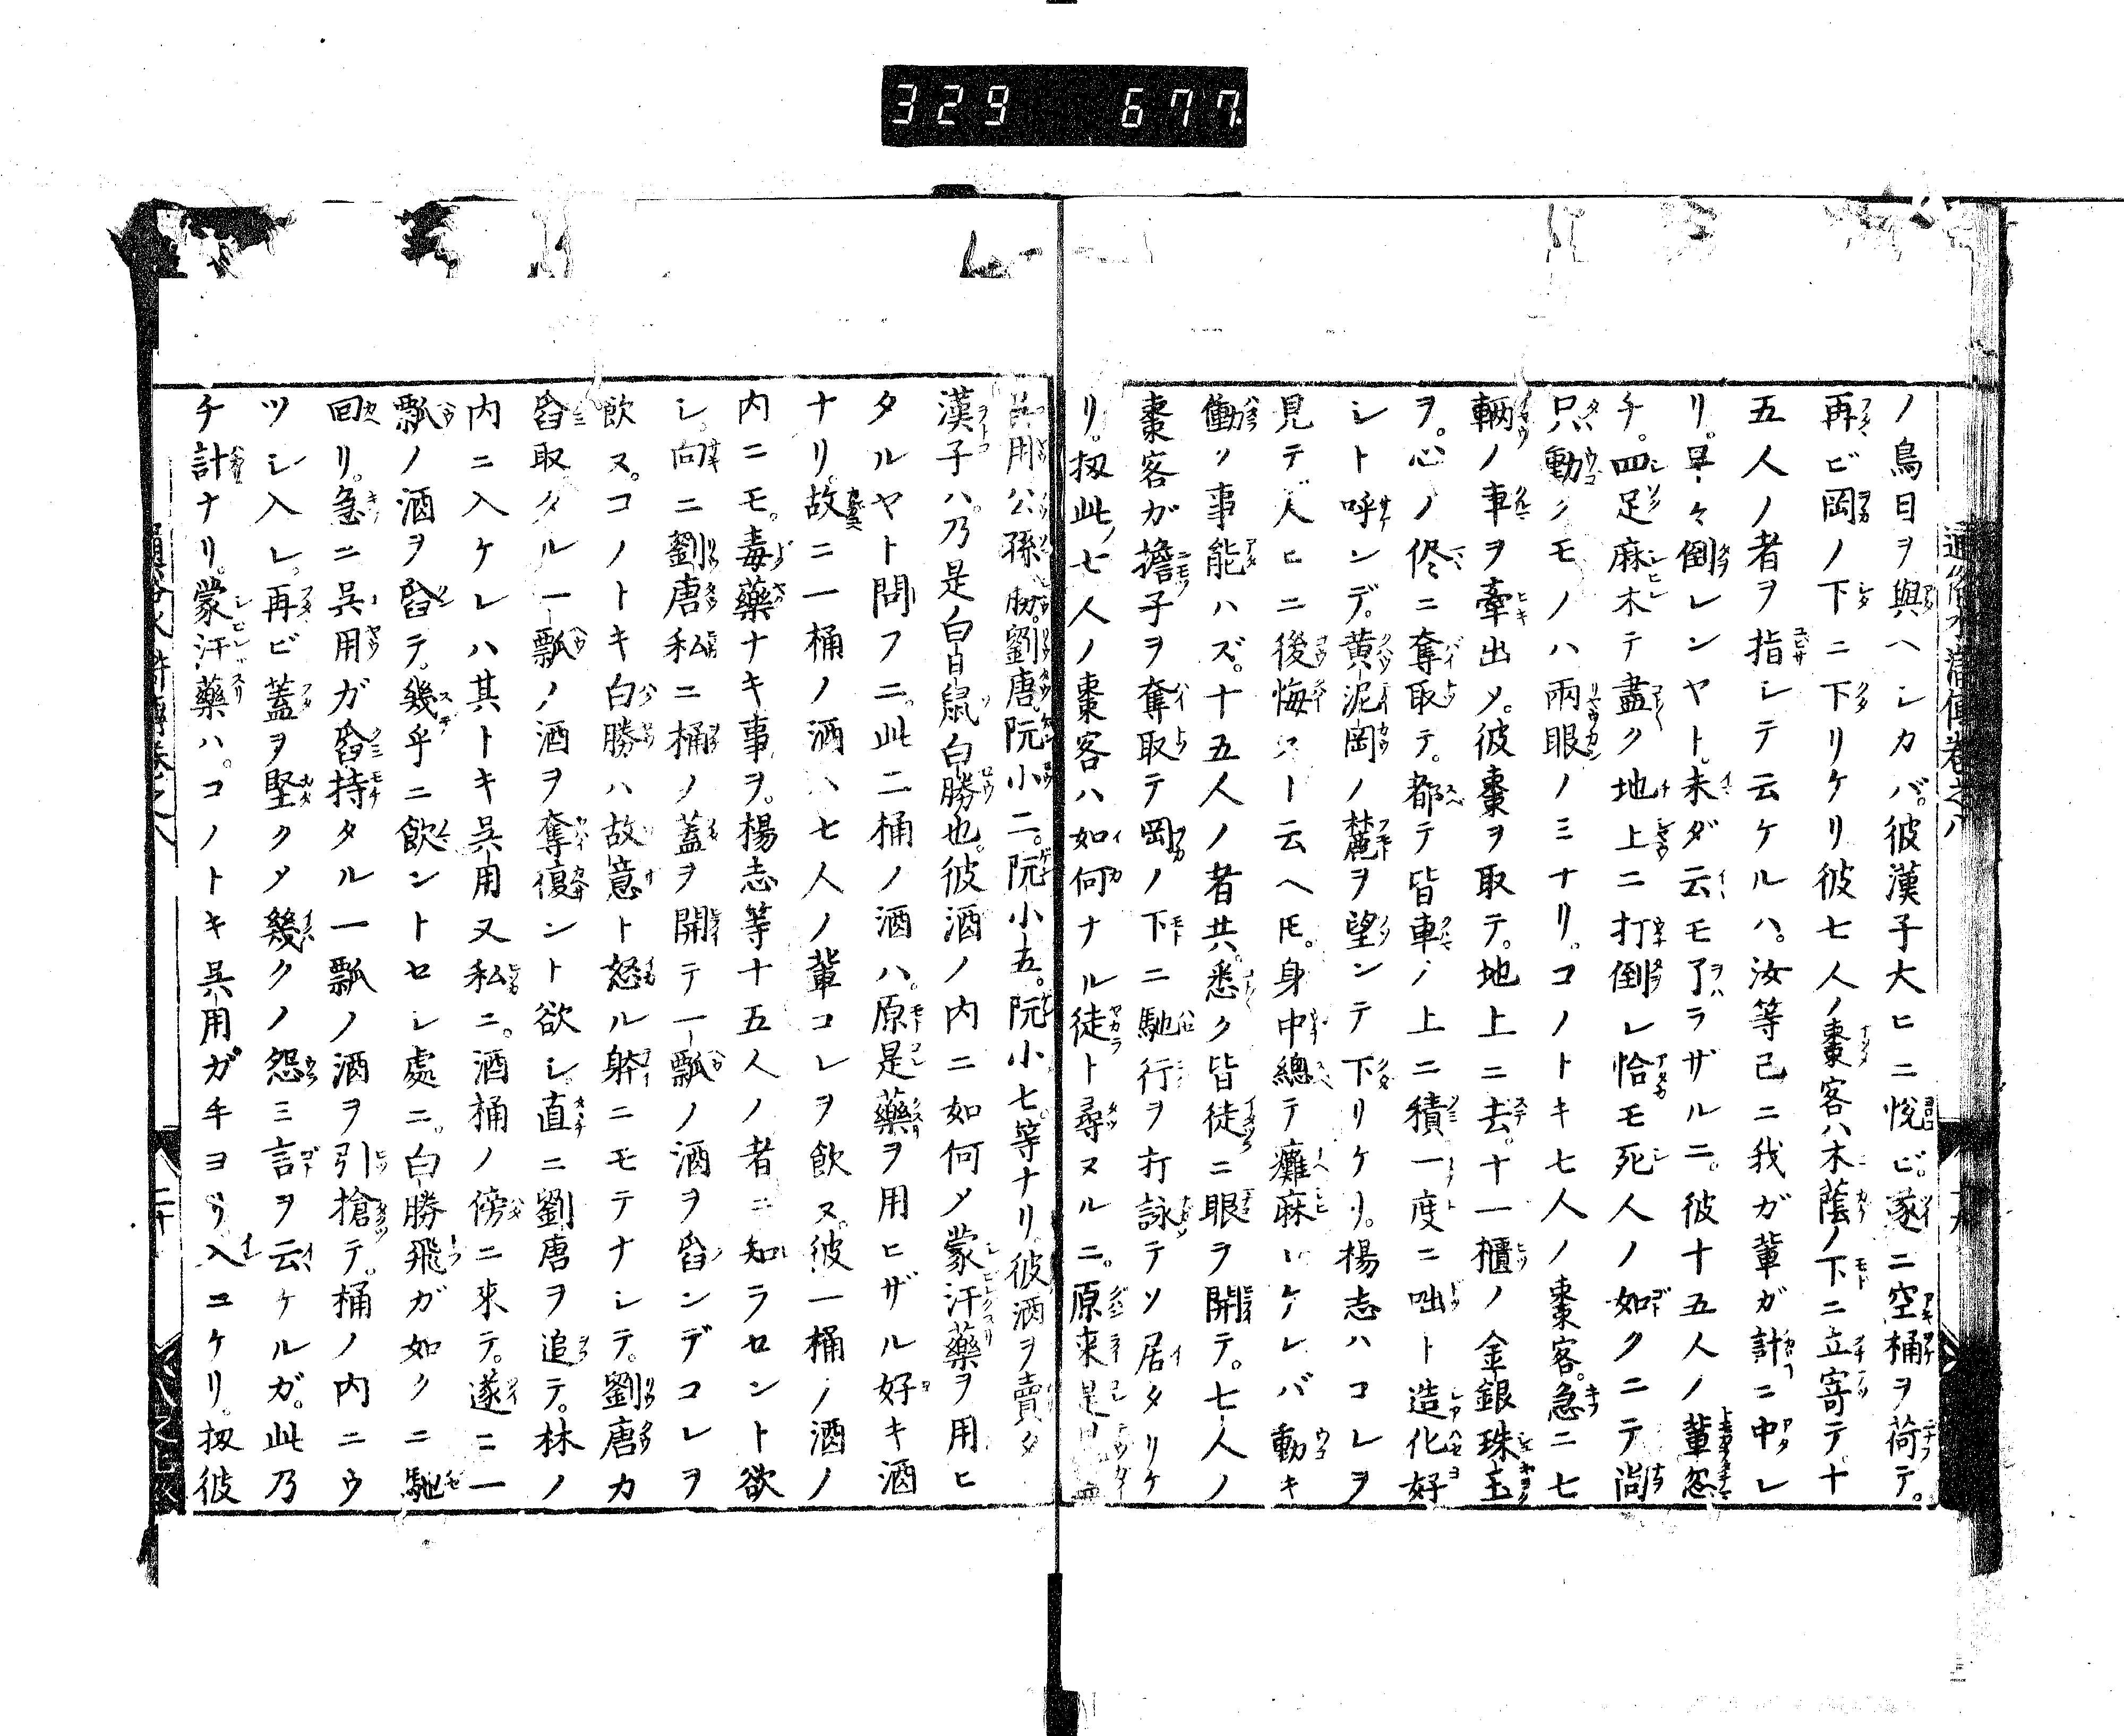 329 677
通俗水滸傳卷之八
ノ鳥目ヲ與ヘシカバ。彼漢子大ヒニ悅ビ。遂ニ空桶ヲ荷テ。
再ビ岡ノ下ニ下リケリ彼七人ノ棗客ハ木蔭ノ下ニ立寄テ。十
五人ノ者ヲ指シテ云ケルハ。汝等己ニ我ガ輩ガ計ニ中レ
リ。早々倒レンヤト。未ダ云モ了ラザルニ。彼十五人ノ輩忽
チ。四足麻木テ盡ク地上ニ打倒レ恰モ死人ノ如クニテ尚
只動クモノハ兩眼ノミナリ。コノトキ七人ノ棗客。急ニ七
輛ノ車ヲ牽出メ。彼棗ヲ取テ。地上ニ去。十一櫃ノ金銀珠玉
ヲ。心ノ儘ニ奪取テ。都テ皆車ノ上ニ積一度ニ咄ト造化好
シト呼ンデ。黄泥岡ノ麓ヲ望ンテ下リケリ。楊志ハコレヲ
見テ大ヒニ後悔スト云ヘ𪜈。身中總テ癱麻ケレバ動キ
働ク事能ハズ。十五人ノ者共。悉ク皆徒ニ眼ヲ開テ。七人ノ
棗客ガ擔子ヲ奪取テ岡ノ下ニ馳行ヲ打詠テソ居タリケ
リ。扨此七人ノ棗客ハ如何ナル徒ト尋ヌルニ。原來是
吳用公孫勝。劉唐。阮小二。阮小五。阮小七。等ナリ。彼酒ヲ賣タ
漢子ハ。乃是ノ白日鼠白勝也。彼酒ノ内ニ如何メ蒙汗藥ヲ用ヒ
タルヤト問フニ。此二桶ノ酒ハ。原是藥ヲ用ヒザル好キ酒
ナリ。故ニ一桶ノ酒ハ七人ノ輩コレヲ飲ヌ。彼一桶ノ酒ノ
内ニモ。毒藥ナキ事ヲ。楊志等十五人ノ者ニ知ラセント欲
シ。向ニ劉唐私ニ桶ノ蓋ヲ開テ一瓢ノ酒ヲ舀ンデコレヲ
飲ヌ。コノトキ白勝ハ故意ト怒ル躰ニモテナシテ。劉唐カ
舀取タル一瓢ノ酒ヲ奪復ント欲シ。直ニ劉唐ヲ追テ。林ノ
内ニ入ケレハ其トキ吳用又私ニ。酒桶ノ傍ニ來テ。遂ニ一
瓢ノ酒ヲ舀テ。幾乎ニ飲ントセシ處ニ。白勝飛ガ如クニ馳
回リ。急ニ吳用ガ舀持タル一瓢ノ酒ヲ引搶テ。桶ノ内ニウ
ツシ入レ。再ビ蓋ヲ堅クメ幾クノ怨ミ言ヲ云ケルガ。此乃
チ計ナリ。蒙汗藥ハ。コノトキ吳用ガ手ヨリ入ニケリ。扨彼